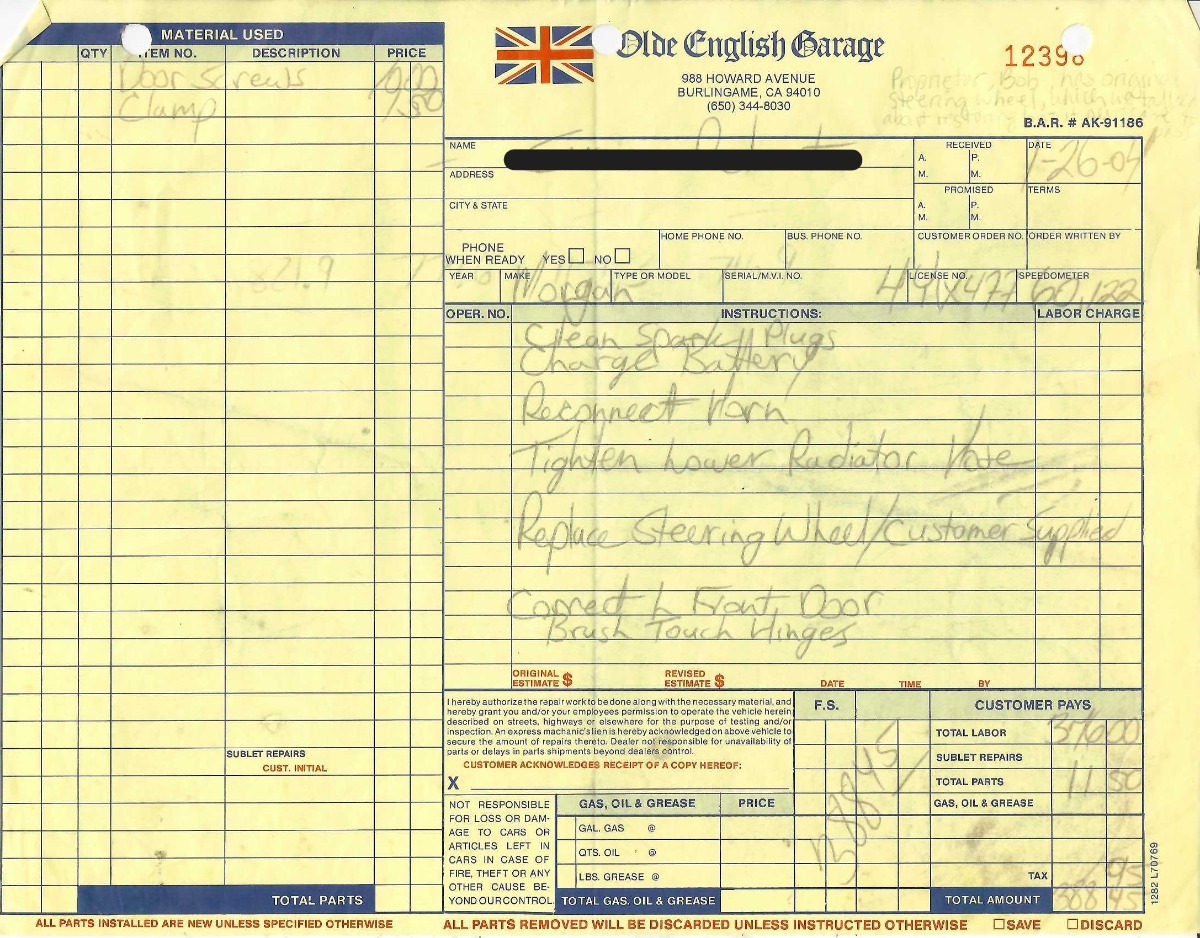 MATERIAL USED
QTY ITEM NO. DESCRIPTION PRICE
Door Screws
Clamp 1.50
Olde English Garage
988 HOWARD AVENUE
BURLINGAME, CA 94010
(650) 344-8030
Proprietor, Bob, has original
steering wheel, which
about
B.A.R. # AK-91186
NAME
ADDRESS
CITY & STATE
RECEIVED
A. M. P. M.
DATE
1-26-04
PROMISED
A. M. P. M.
TERMS
PHONE WHEN READY YES NO
HOME PHONE NO.
BUS. PHONE NO.
CUSTOMER ORDER NO.
ORDER WRITTEN BY
YEAR
MAKE Morgan
TYPE OR MODEL
SERIAL/M.V.I. NO.
LICENSE NO.
SPEEDOMETER 60,122
OPER. NO. INSTRUCTIONS: LABOR CHARGE
Clean Spark Plugs
Charge Battery
Reconnect Horn
Tighten Lower Radiator
Replace Steering Wheel/Customer Supplied
Correct L Front Door
Brush Touch Hinges
ORIGINAL ESTIMATE $
REVISED ESTIMATE $
DATE TIME BY
I hereby authorize the repair work to be done along with the necessary material, and
hereby grant you and/or your employees permission to operate the vehicle herein
described on streets, highways or elsewhere for the purpose of testing and/or
inspection. An express machanic's lien is hereby acknowledged on above vehicle to
secure the amount of repairs thereto. Dealer not responsible for unavailability of
parts or delays in parts shipments beyond dealers control.
CUSTOMER ACKNOWLEDGES RECEIPT OF A COPY HEREOF:
X
F.S.
CUSTOMER PAYS
TOTAL LABOR 376 00
SUBLET REPAIRS
TOTAL PARTS 11 50
GAS, OIL & GREASE
TAX 95
TOTAL AMOUNT 388 45
SUBLET REPAIRS
CUST. INITIAL
NOT RESPONSIBLE
FOR LOSS OR DAM-
AGE TO CARS OR
ARTICLES LEFT IN
CARS IN CASE OF
FIRE, THEFT OR ANY
OTHER CAUSE BE-
YOND OUR CONTROL.
GAS, OIL & GREASE PRICE
GAL. GAS @
QTS. OIL @
LBS. GREASE @
TOTAL GAS. OIL & GREASE
TOTAL PARTS
1282 L70769
ALL PARTS INSTALLED ARE NEW UNLESS SPECIFIED OTHERWISE
ALL PARTS REMOVED WILL BE DISCARDED UNLESS INSTRUCTED OTHERWISE SAVE DISCARD